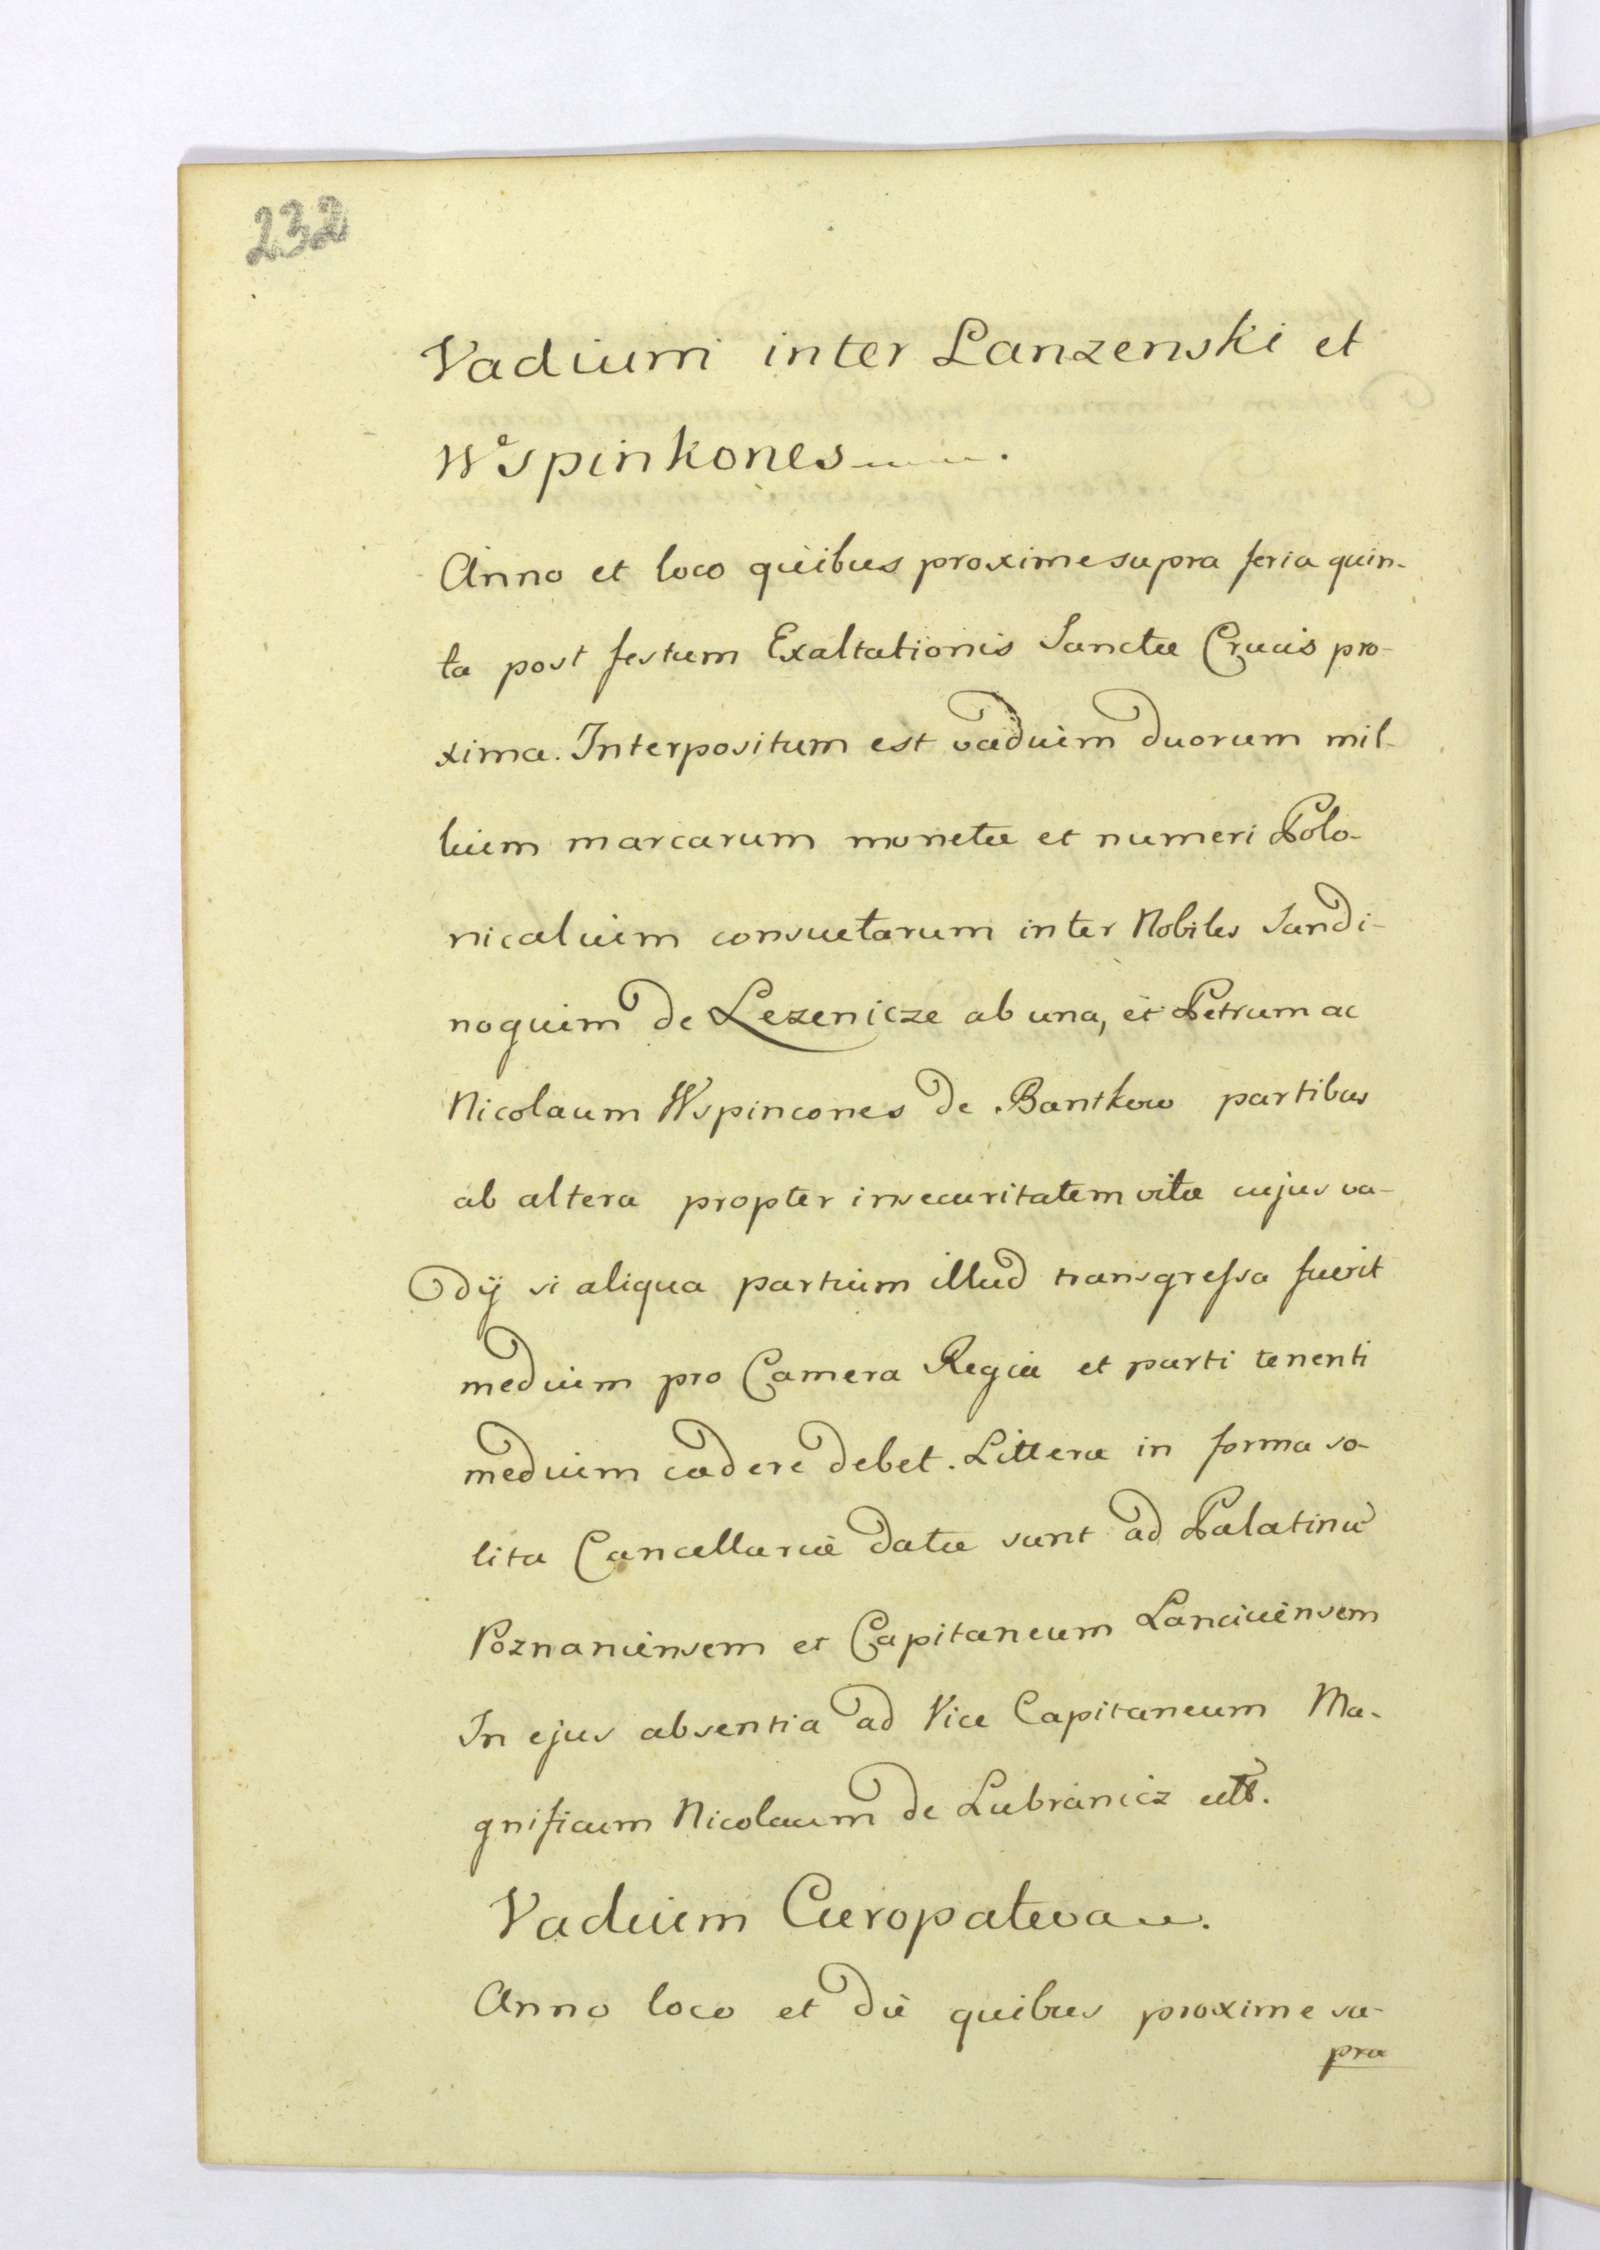 232
Vadium inter Lanzenski et
Wspinkones
Anno et loco quibus proxime supra feria quin-
ta post festum Exaltationis Sanctæ Crucis pro-
xima. Interpositum est vadium duorum mil-
lium marcarum monetæ et numeri Polo-
nicalium consuetarum inter Nobiles Sandi-
nogium de Lezenicze ab una, et Petrum ac
Nicolaum Wspincones de Bantkow partibus
ab altera propter insecuritatem vitæ cujus va-
dij si aliqua partium illud transgressa fuerit
medium pro Camera Regia et parti tenenti
medium cadere debet. Litteræ in forma so-
lita Cancellariæ datæ sunt ad Palatinū
Poznaniensem et Capitaneum Lanciciensem
In ejus absentia ad Vice Capitaneum Ma-
gnificum Nicolaum de Lubranicz
Vadium Curopatwa
Anno loco et die quibus proxime su-
pra